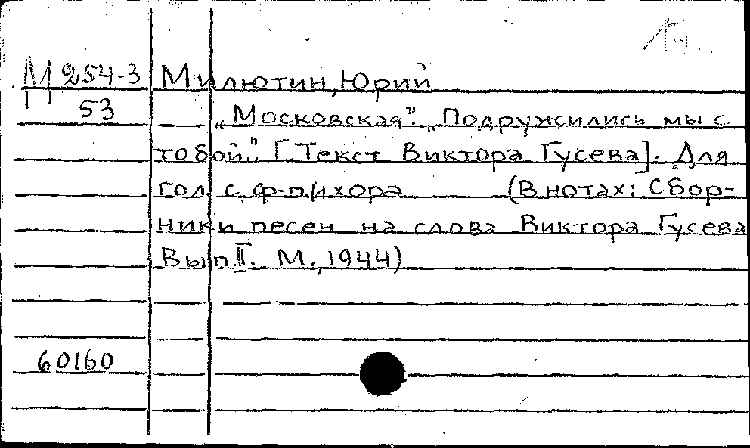 М 254-3 Милютин, Юрий
53 „Московская". „Подружились мы с
тобой". [Текст Виктора Гусева]. Для
гол. с ф-п. и хора (В нотах: Сбор-
ники песен на слова Виктора Гусева
Вып. II. М., 1944)
60160